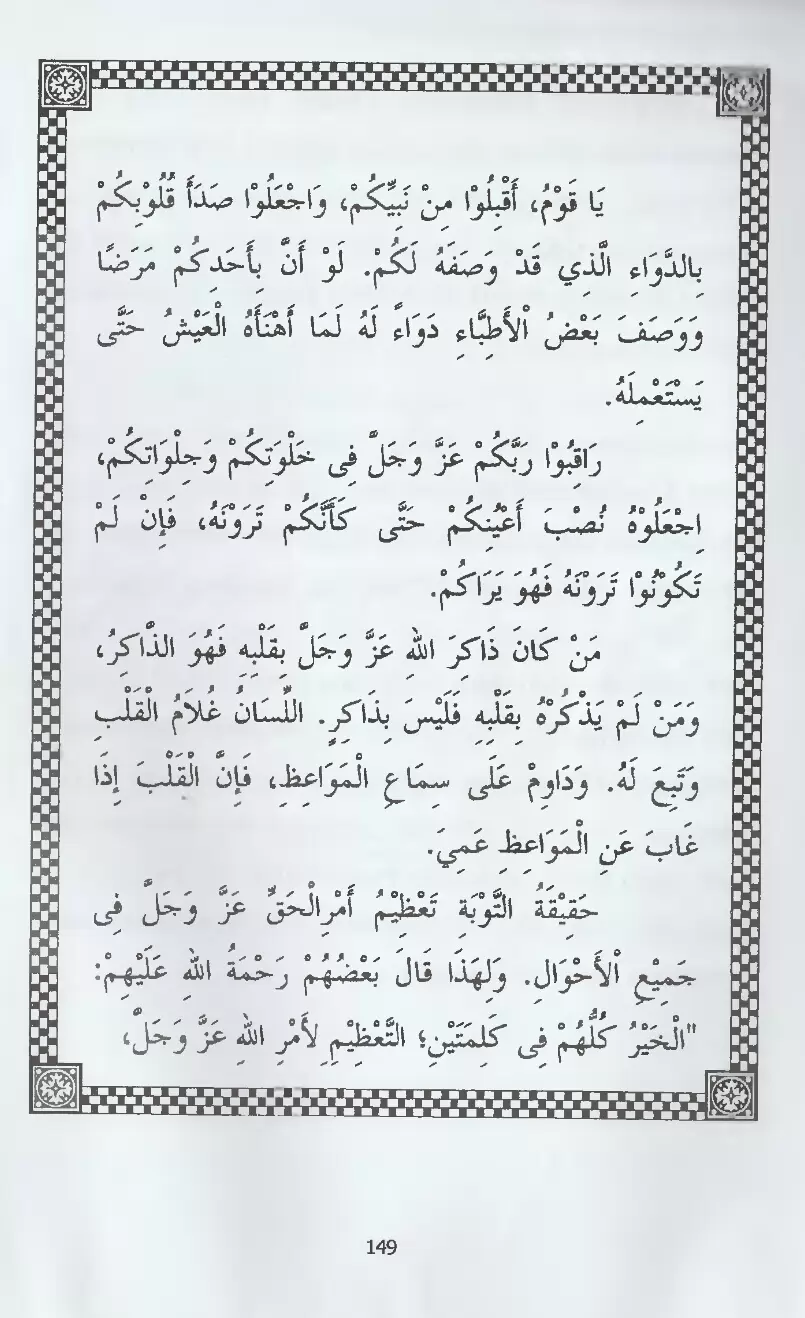 يَا قَوْمُ، أَقْبِلُوْا مِنْ نَبِيِّكُمْ، وَاجْعَلُوْا صَدَأَ قُلُوْبِكُمْ
بِالدَّوَاءِ الَّذِي قَدْ وَصَفَهُ لَكُمْ. لَوْ أَنَّ بِأَحَدِكُمْ مَرَضًا
وَوَصَفَ بَعْضُ الْأَطِبَّاءِ دَوَاءً لَهُ لَمَا أَهْنَأَهُ الْعَيْشُ حَتَّى
يَسْتَعْمِلَهُ.
رَاقِبُوْا رَبَّكُمْ عَزَّ وَجَلَّ فِى خَلْوَتِكُمْ وَجِلْوَاتِكُمْ،
اِجْعَلُوْهُ نُصْبَ أَعْيُنِكُمْ حَتَّى كَأَنَّكُمْ تَرَوْنَهُ، فَإِنْ لَمْ
تَكُوْنُوْا تَرَوْنَهُ فَهُوَ يَرَاكُمْ.
مَنْ كَانَ ذَاكِرَ اللهِ عَزَّ وَجَلَّ بِقَلْبِهِ فَهُوَ الذَّاكِرُ،
وَمَنْ لَمْ يَذْكُرْهُ بِقَلْبِهِ فَلَيْسَ بِذَاكِرٍ. اللِّسَانُ غُلَامُ الْقَلْبِ
وَتَبِعَ لَهُ. وَدَاوِمْ عَلَى سِمَاعِ الْمَوَاعِظِ، فَإِنَّ الْقَلْبَ إِذَا
غَابَ عَنِ الْمَوَاعِظِ عَمِيَ.
حَقِيْقَةُ التَّوْبَةِ تَعْظِيْمُ أَمْرِالْحَقِّ عَزَّ وَجَلَّ فِى
جَمِيْعِ الْأَحْوَالِ. وَلِهَذَا قَالَ بَعْضُهُمْ رَحْمَةُ اللهِ عَلَيْهِمْ:
"الْخَيْرُ كُلُّهُمْ فِى كَلِمَتَيْنِ؛ التَّعْظِيْمِ لِأَمْرِ اللهِ عَزَّ وَجَلَّ،
149